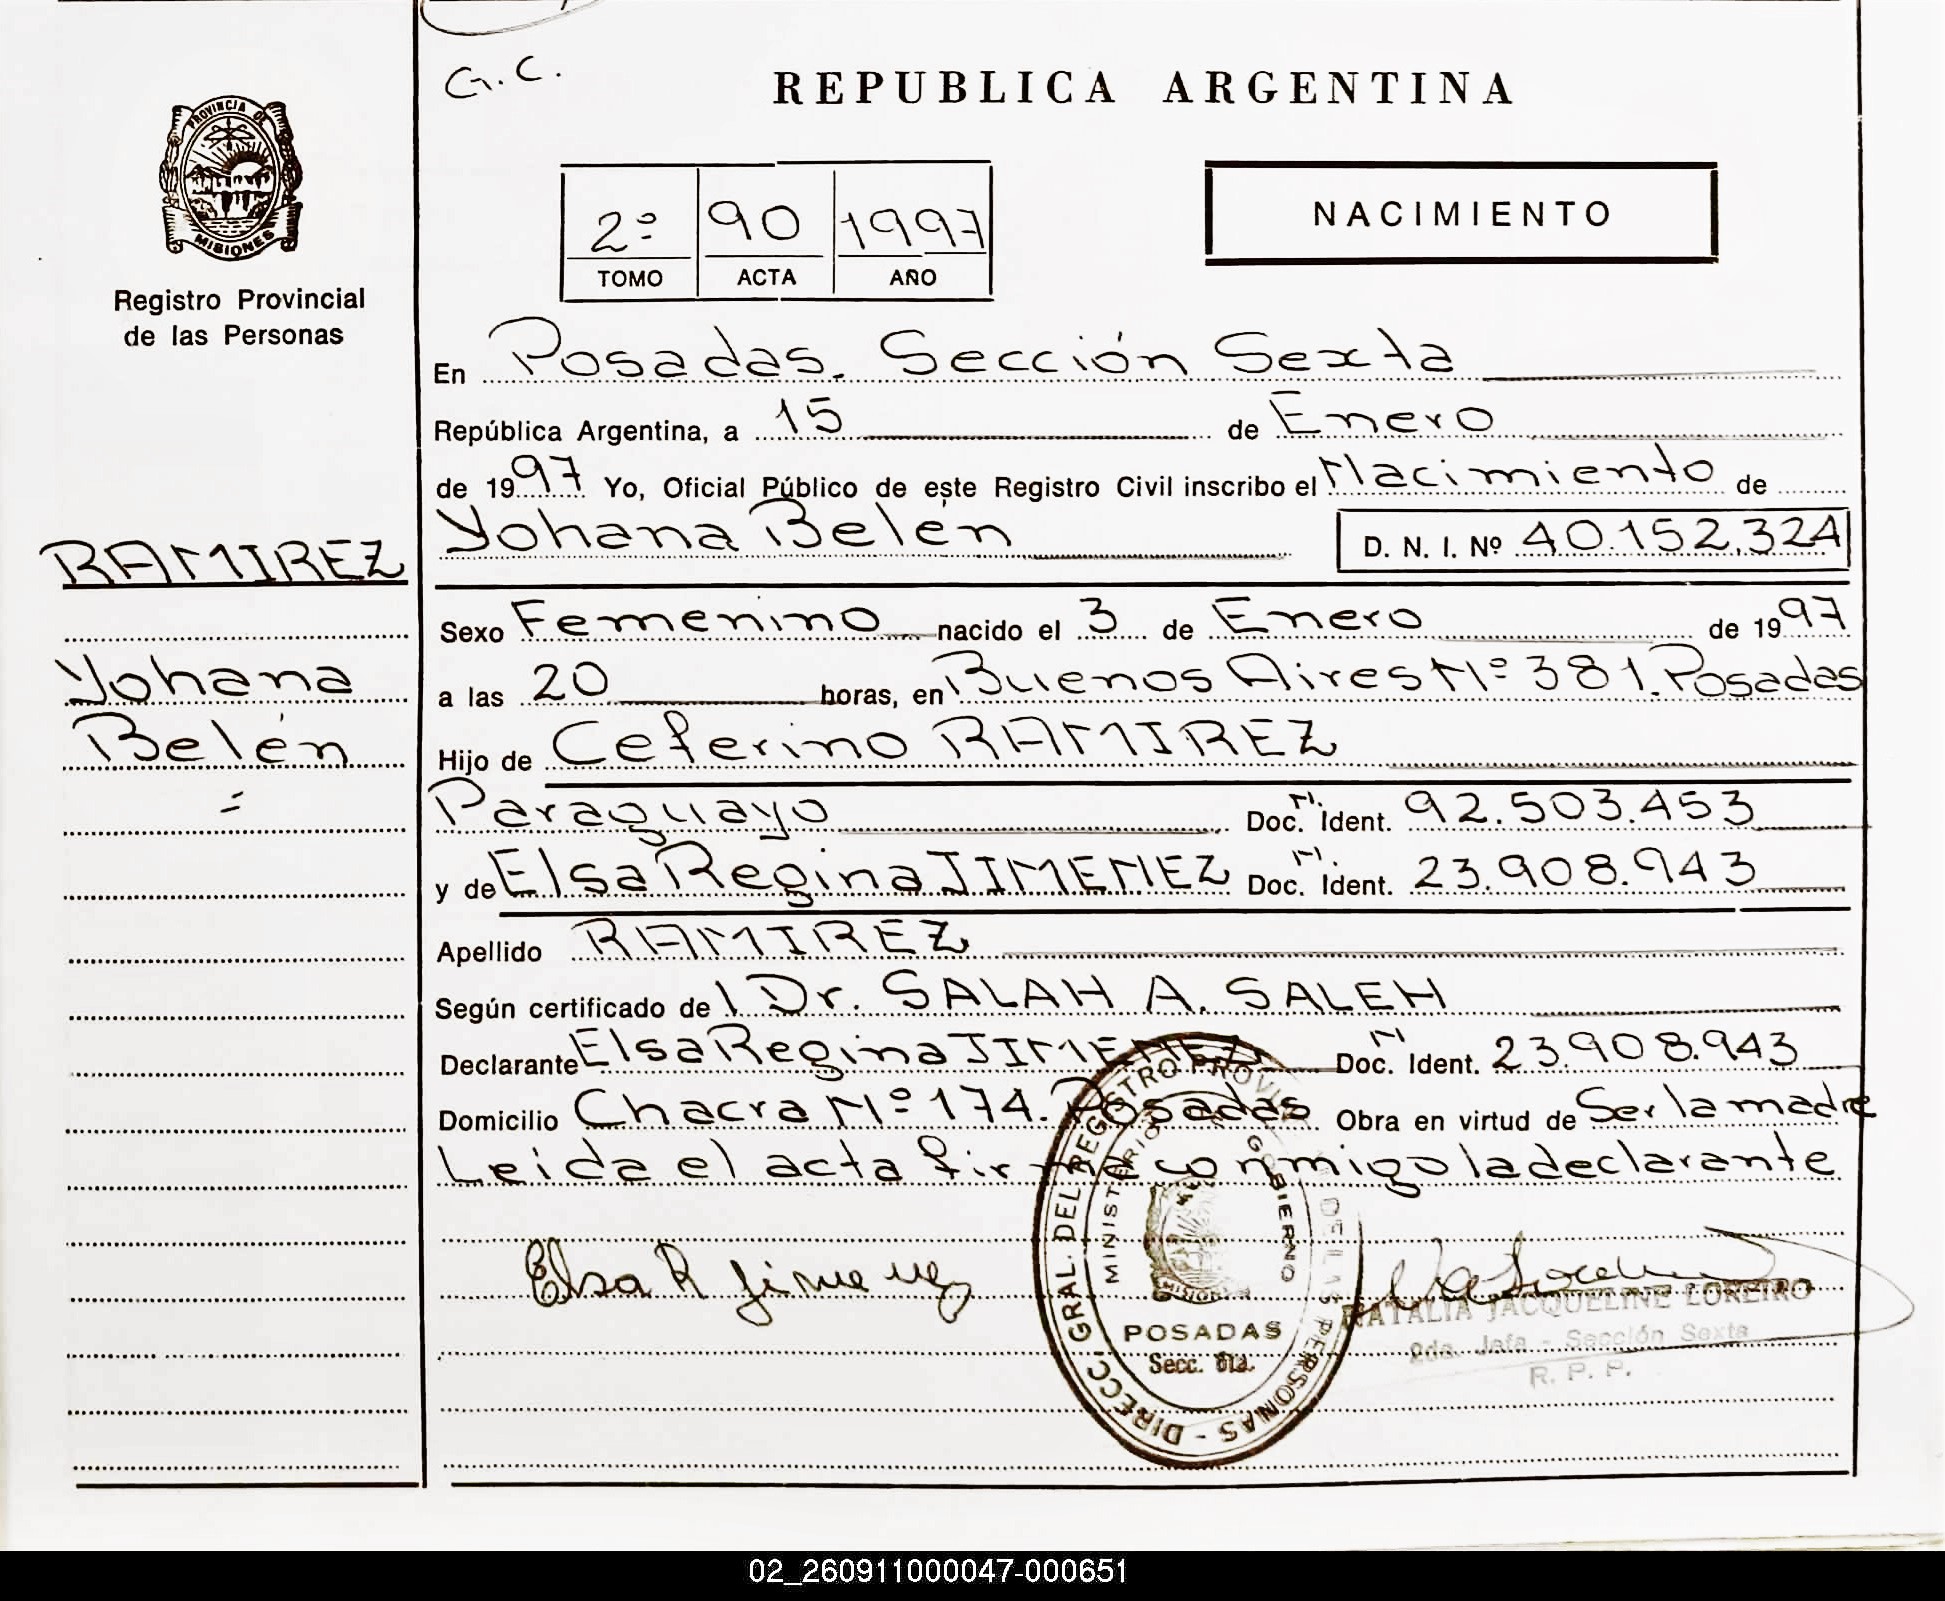 G. C.
REPUBLICA ARGENTINA
PROVINCIA DE
MISIONES
Registro Provincial
de las Personas
2º 90 1997
TOMO ACTA AÑO
NACIMIENTO
En Posadas. Sección Sexta
República Argentina, a 15 de Enero
de 1997 Yo, Oficial Público de este Registro Civil inscribo el Nacimiento de
Yohana Belén D. N. I. Nº 40.152.324
RAMIREZ
Yohana
Belén
Sexo Femenino nacido el 3 de Enero de 1997
a las 20 horas, en Buenos Aires Nº 381. Posadas
Hijo de Ceferino RAMIREZ
Paraguayo Doc. N. Ident. 92.503.453
y de Elsa Regina JIMENEZ Doc. N. Ident. 23.908.943
Apellido RAMIREZ
Según certificado del Dr. SALAH A. SALEH
Declarante Elsa Regina JIMENEZ Doc. N Ident. 23.908.943
Domicilio Chacra Nº 174. Posadas Obra en virtud de Ser la madre
Leida el acta firma conmigo la declarante
Elsa R Jimenez
DIRECC. GRAL. DEL REGISTRO PROVINCIAL DE LAS PERSONAS -
MINISTERIO GOBIERNO
POSADAS
Secc. 6ta.
NATALIA JACQUELINE LOREIRO
2da. Jefa - Sección Sexta
R. P. P.
02_260911000047-000651